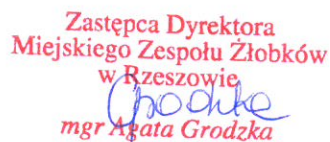 Zastępca Dyrektora
Miejskiego Zespołu Żłobków
w Rzeszowie
mgr Agata Grodzka